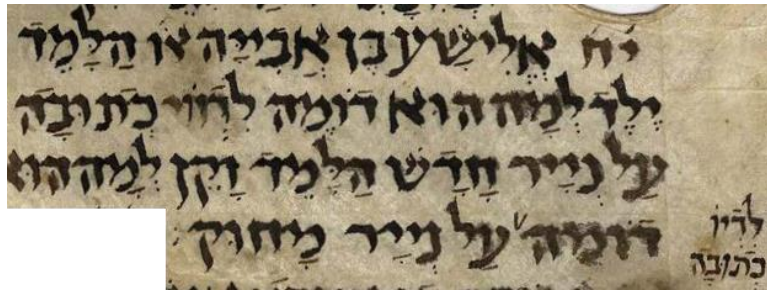 יח אלישע בן אבייה או הלמד
ילד למה הוא דומה לדיו כתובה
על נייר חדש הלמד זקן למה הוא
דומה על נייר מחוק
לדיו
כתובה